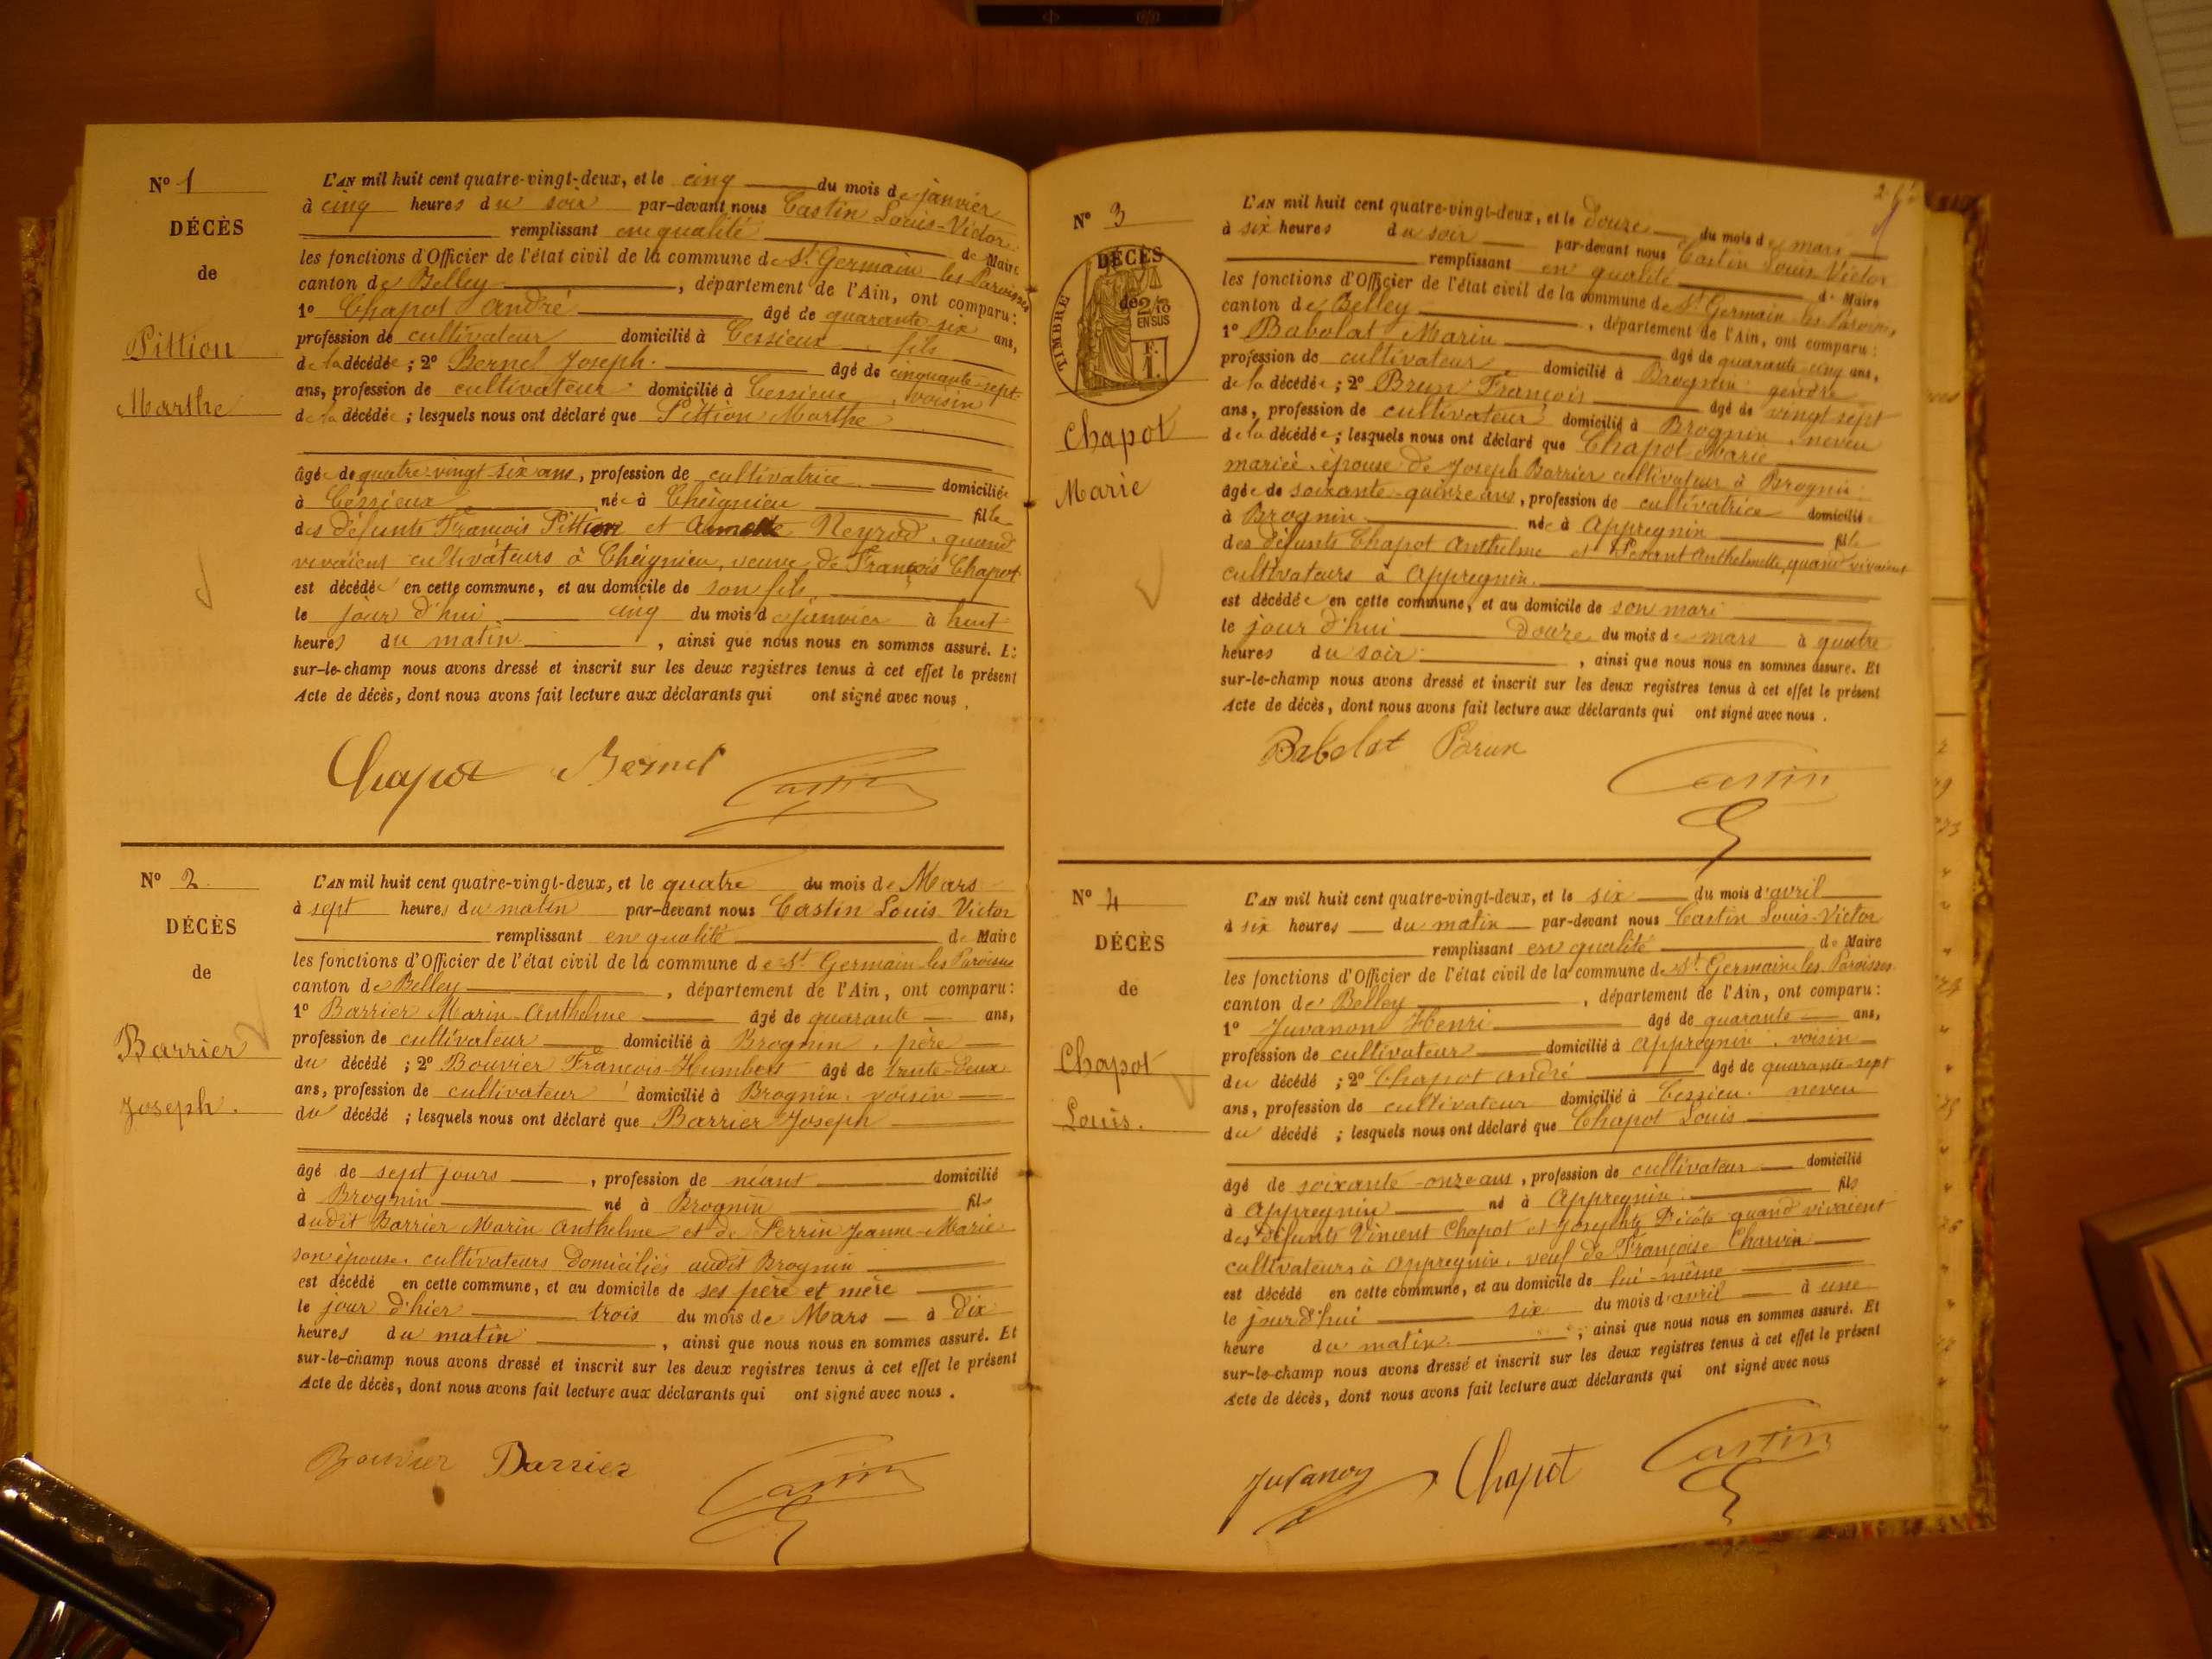 N° 1
DÉCÈS
de
Pittion
Marthe
L'AN mil huit cent quatre-vingt-deux, et le cinq du mois de janvier
à cinq heures du soir par-devant nous Castin Louis-Victor
remplissant en qualité de Maire
les fonctions d'Officier de l'état civil de la commune de St Germain les Paroisses
canton de Belley, département de l'Ain, ont comparu:
1° Chapot André âgé de quarante-six ans,
profession de cultivateur domicilié à Cessieux, fils
de la décédée; 2° Bernel Joseph âgé de cinquante-sept
ans, profession de cultivateur domicilié à Cessieux, voisin
de la décédée; lesquels nous ont déclaré que Pittion Marthe
âgée de quatre-vingt-six ans, profession de cultivatrice domiciliée
à Cessieux née à Cheignieu fille
des défunts François Pittion et Neyrod, quand
vivaient cultivateurs à Cheignieu, veuve de François Chapot
est décédée en cette commune, et au domicile de son fils
le jour d'hui cinq du mois de janvier à huit
heures du matin, ainsi que nous nous en sommes assuré. Et
sur-le-champ nous avons dressé et inscrit sur les deux registres tenus à cet effet le présent
Acte de décès, dont nous avons fait lecture aux déclarants qui ont signé avec nous.
Chapot Bernel Castin
N° 2.
DÉCÈS
de
Barrier
Joseph.
L'AN mil huit cent quatre-vingt-deux, et le quatre du mois de Mars
à sept heures du matin par-devant nous Castin Louis-Victor
remplissant en qualité de Maire
les fonctions d'Officier de l'état civil de la commune de St Germain les Paroisses
canton de Belley, département de l'Ain, ont comparu:
1° Barrier Marin-Anthelme âgé de quarante ans,
profession de cultivateur domicilié à Brognin, père
du décédé; 2° Bouvier François-Humbert âgé de trente-deux
ans, profession de cultivateur domicilié à Brognin, voisin
du décédé; lesquels nous ont déclaré que Barrier Joseph
âgé de sept jours, profession de néant domicilié
à Brognin né à Brognin fils
dudit Barrier Marin Anthelme et de Perrin Jeanne-Marie
son épouse, cultivateurs domiciliés audit Brognin
est décédé en cette commune, et au domicile de ses père et mère
le jour d'hier trois du mois de Mars à dix
heures du matin, ainsi que nous nous en sommes assuré. Et
sur-le-champ nous avons dressé et inscrit sur les deux registres tenus à cet effet le présent
Acte de décès, dont nous avons fait lecture aux déclarants qui ont signé avec nous.
Bouvier Barrier Castin
N° 3
DÉCÈS
de
TIMBRE
2/10
EN SUS
F.
1.
Chapot
Marie
L'AN mil huit cent quatre-vingt-deux, et le douze du mois de mars
à six heures du soir par-devant nous Castin Louis Victor
remplissant en qualité de Maire
les fonctions d'Officier de l'état civil de la commune de St Germain les Paroisses,
canton de Belley, département de l'Ain, ont comparu:
1° Babolat Marin âgé de quarante-cinq ans,
profession de cultivateur, domicilié à Brognin gendre
de la décédée; 2° Brun François âgé de vingt sept
ans, profession de cultivateur domicilié à Brognin, neveu
de la décédée; lesquels nous ont déclaré que Chapot Marie
mariée, épouse de Joseph Barrier cultivateur à Brognin
âgée de soixante-quinze ans, profession de cultivatrice domiciliée
à Brognin née à Appregnin fille
des défunts Chapot Anthelme et Anthelmette, quand vivaient
cultivateurs à Appregnin.
est décédée en cette commune, et au domicile de son mari
le jour d'hui douze du mois de mars à quatre
heures du soir, ainsi que nous nous en sommes assuré. Et
sur-le-champ nous avons dressé et inscrit sur les deux registres tenus à cet effet le présent
Acte de décès, dont nous avons fait lecture aux déclarants qui ont signé avec nous.
Babolat Brun
Castin
N° 4
DÉCÈS
de
Chapot
Louis.
L'AN mil huit cent quatre-vingt-deux, et le six du mois d'avril
à six heures du matin par-devant nous Castin Louis-Victor
remplissant en qualité de Maire
les fonctions d'Officier de l'état civil de la commune de St Germain les Paroisses
canton de Belley, département de l'Ain, ont comparu:
1° Juvanon Henri âgé de quarante ans,
profession de cultivateur domicilié à Appregnin, voisin
du décédé; 2° Chapot André âgé de quarante-sept
ans, profession de cultivateur domicilié à Cessieu. neveu
du décédé; lesquels nous ont déclaré que Chapot Louis
âgé de soixante-onze ans, profession de cultivateur domicilié
à Appregnin né à Appregnin fils
des défunts Vincent Chapot et Josephte quand vivaient
cultivateurs à Appregnin, veuf de Françoise Charvin
est décédé en cette commune, et au domicile de lui-même
le jourd'hui six du mois d'avril à une
heure du matin, ainsi que nous nous en sommes assuré. Et
sur-le-champ nous avons dressé et inscrit sur les deux registres tenus à cet effet le présent
Acte de décès, dont nous avons fait lecture aux déclarants qui ont signé avec nous
Juvanon Chapot Castin